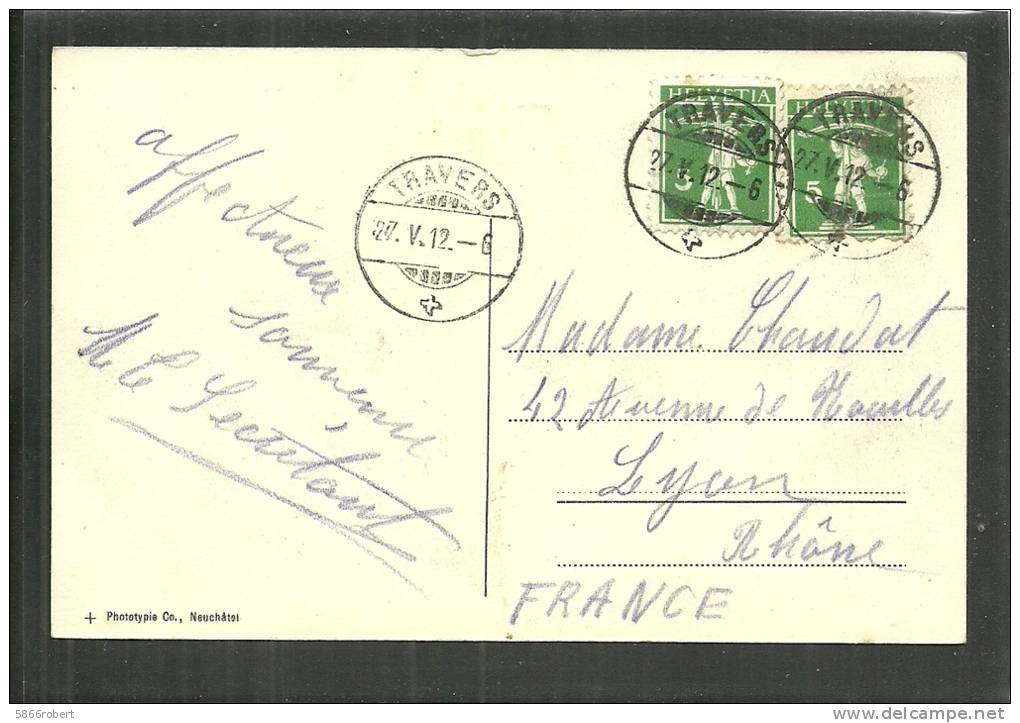 affectueux
souvenir
M. Le Secretant
TRAVERS
27. V. 12. — 6
HELVETIA
TRAVERS
27. V. 12. — 6
5
HELVETIA
TRAVERS
27. V. 12. — 6
5
Madame Chaudat
42 Avenue de Noailles
Lyon
Rhône
FRANCE
+ Phototypie Co., Neuchâtel
5866robert
delcampe.net